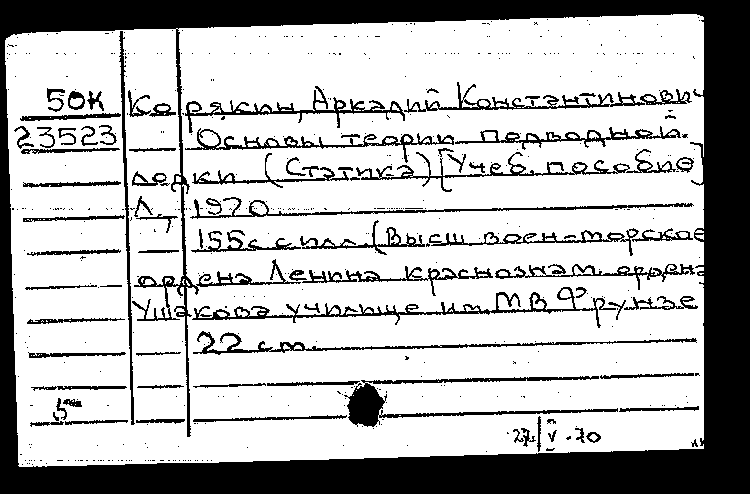 50К Корякин, Аркадий Константинович
23523 Основы теории подводной
лодки (Статика) [Учеб. пособие]
Л., 1970.
155 с. с илл. (Высш военно-морское
ордена Ленина краснознам. ордена
Ушакова училище им. М В. Фрунзе
22 см.
5
V-70